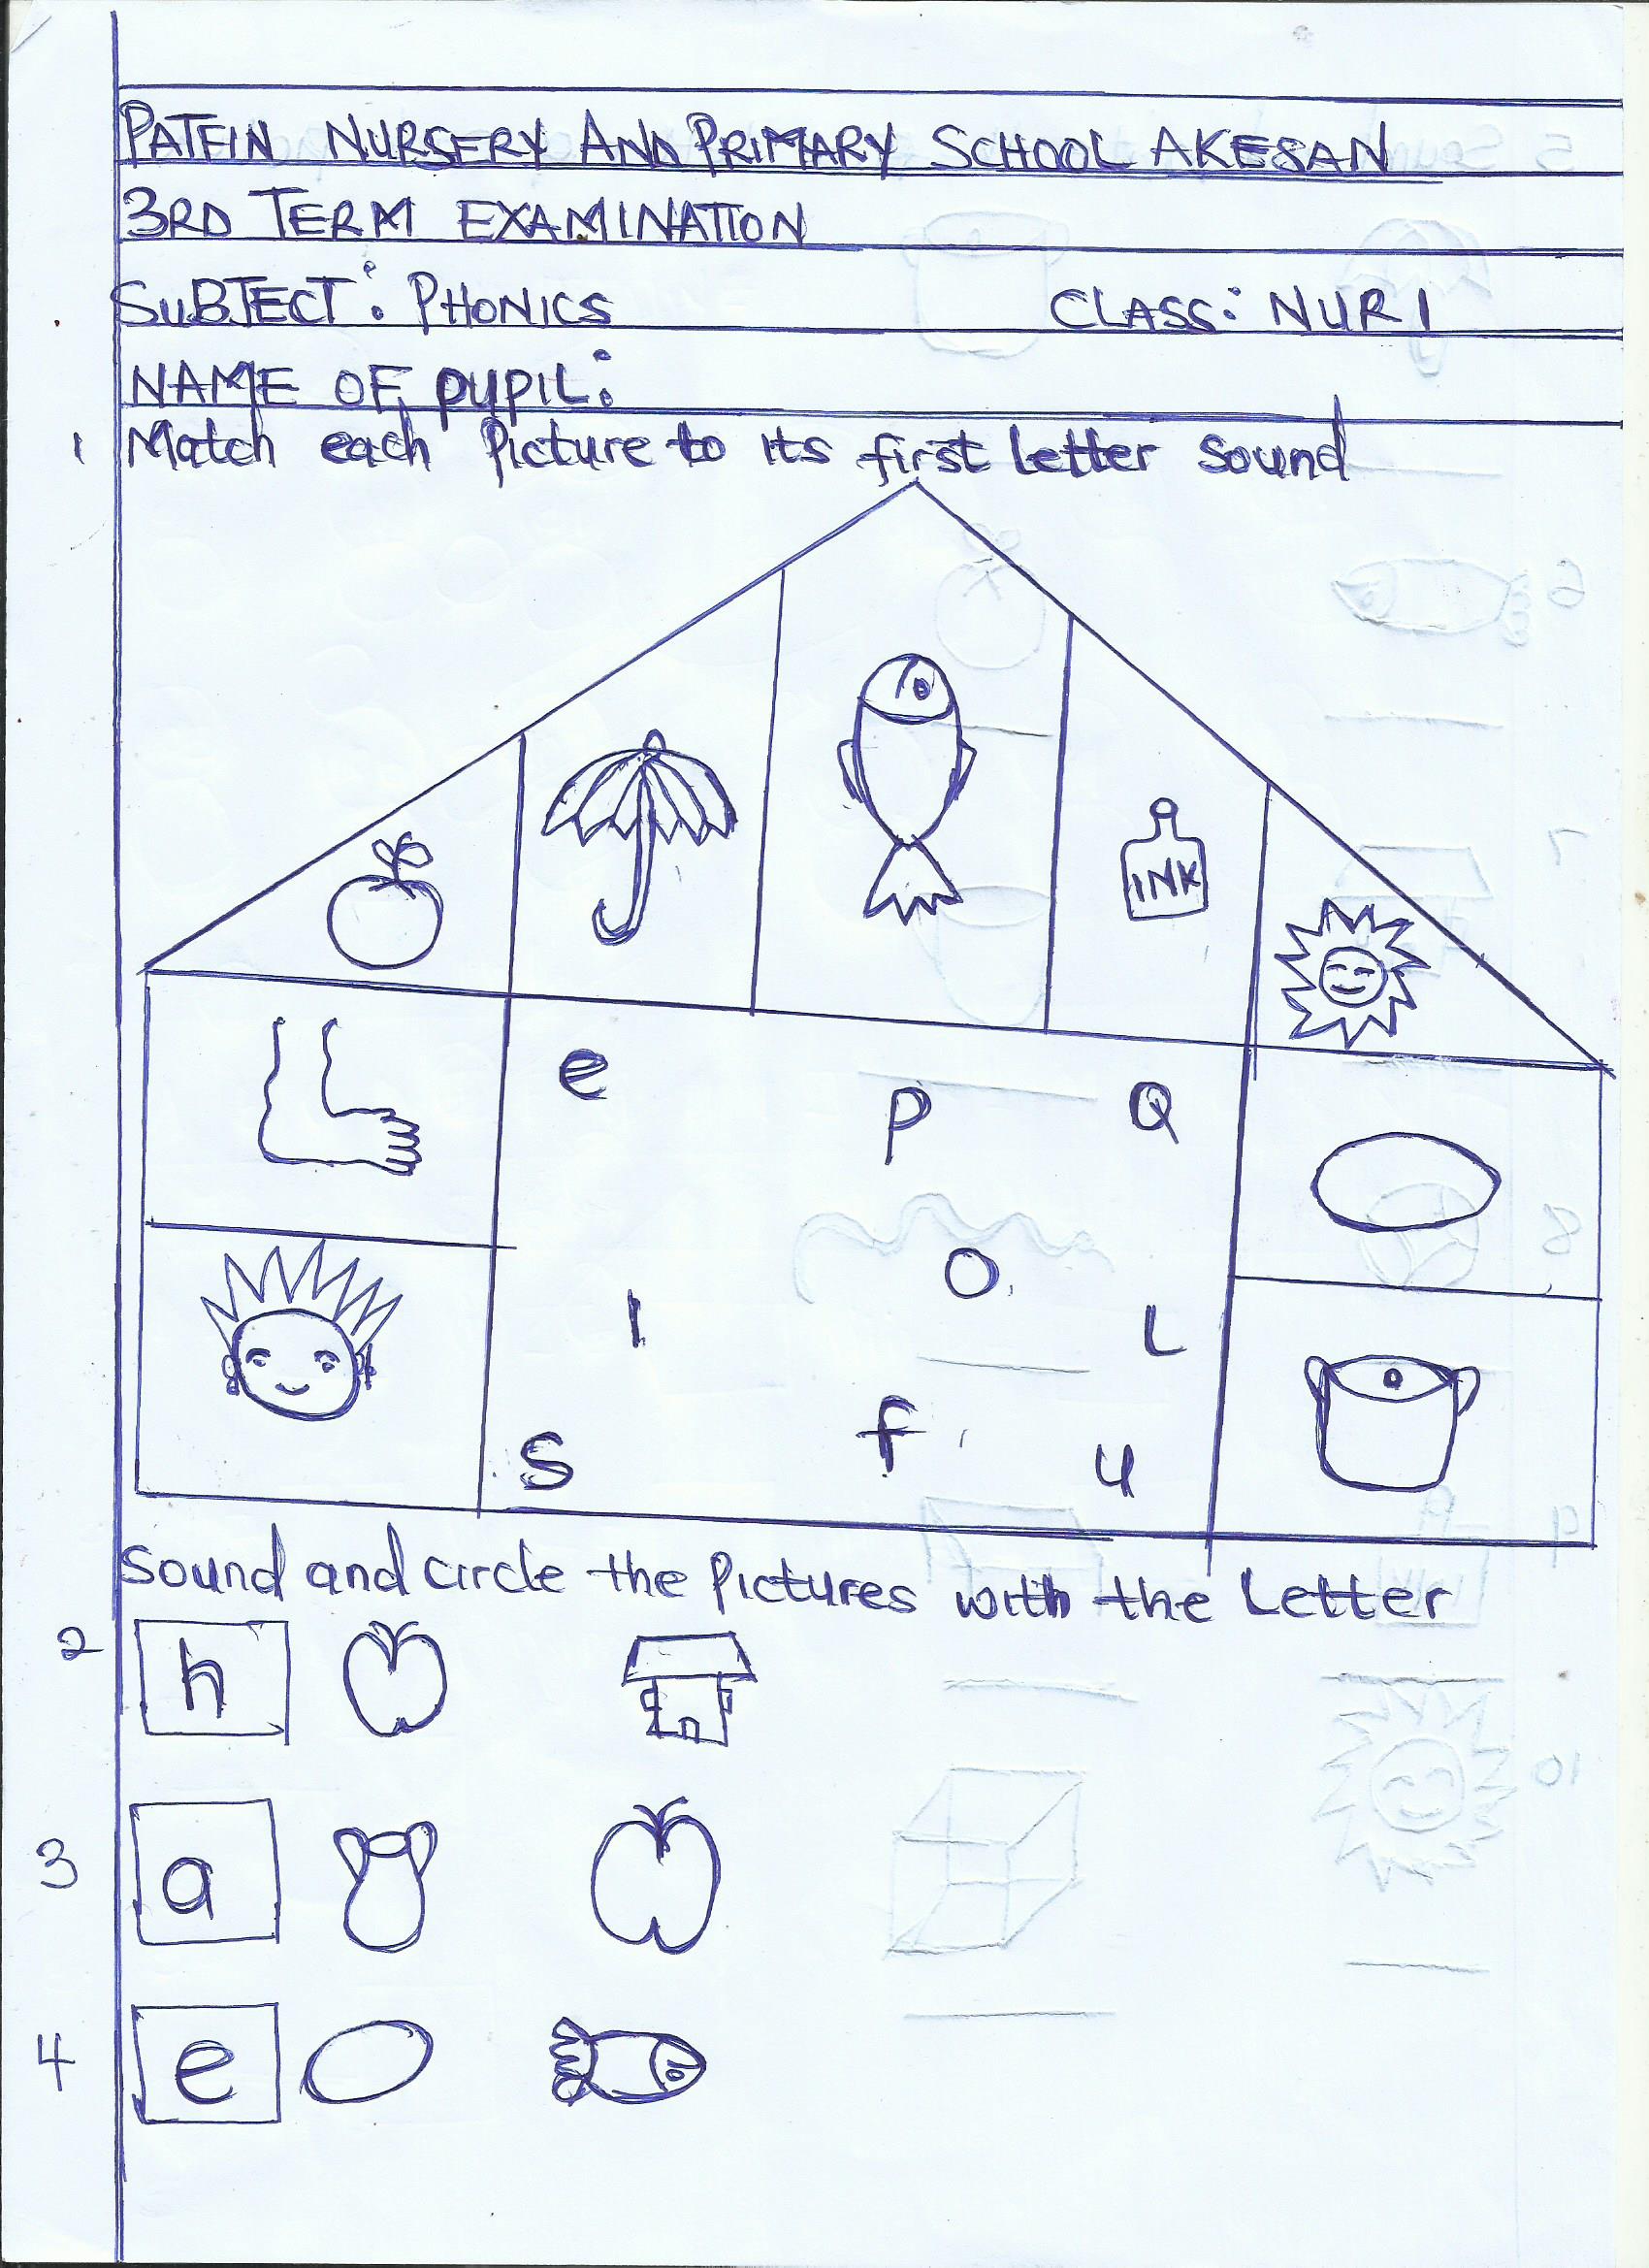 PATFIN NURSERY AND PRIMARY SCHOOL AKESAN
3RD TERM EXAMINATION
SUBJECT: PHONICS CLASS: NUR 1
NAME OF PUPIL:
1 Match each Picture to its first letter sound
INK
e P Q
O
I L
f
S u
Sound and circle the Pictures with the Letter
2 h
3 a
4 e